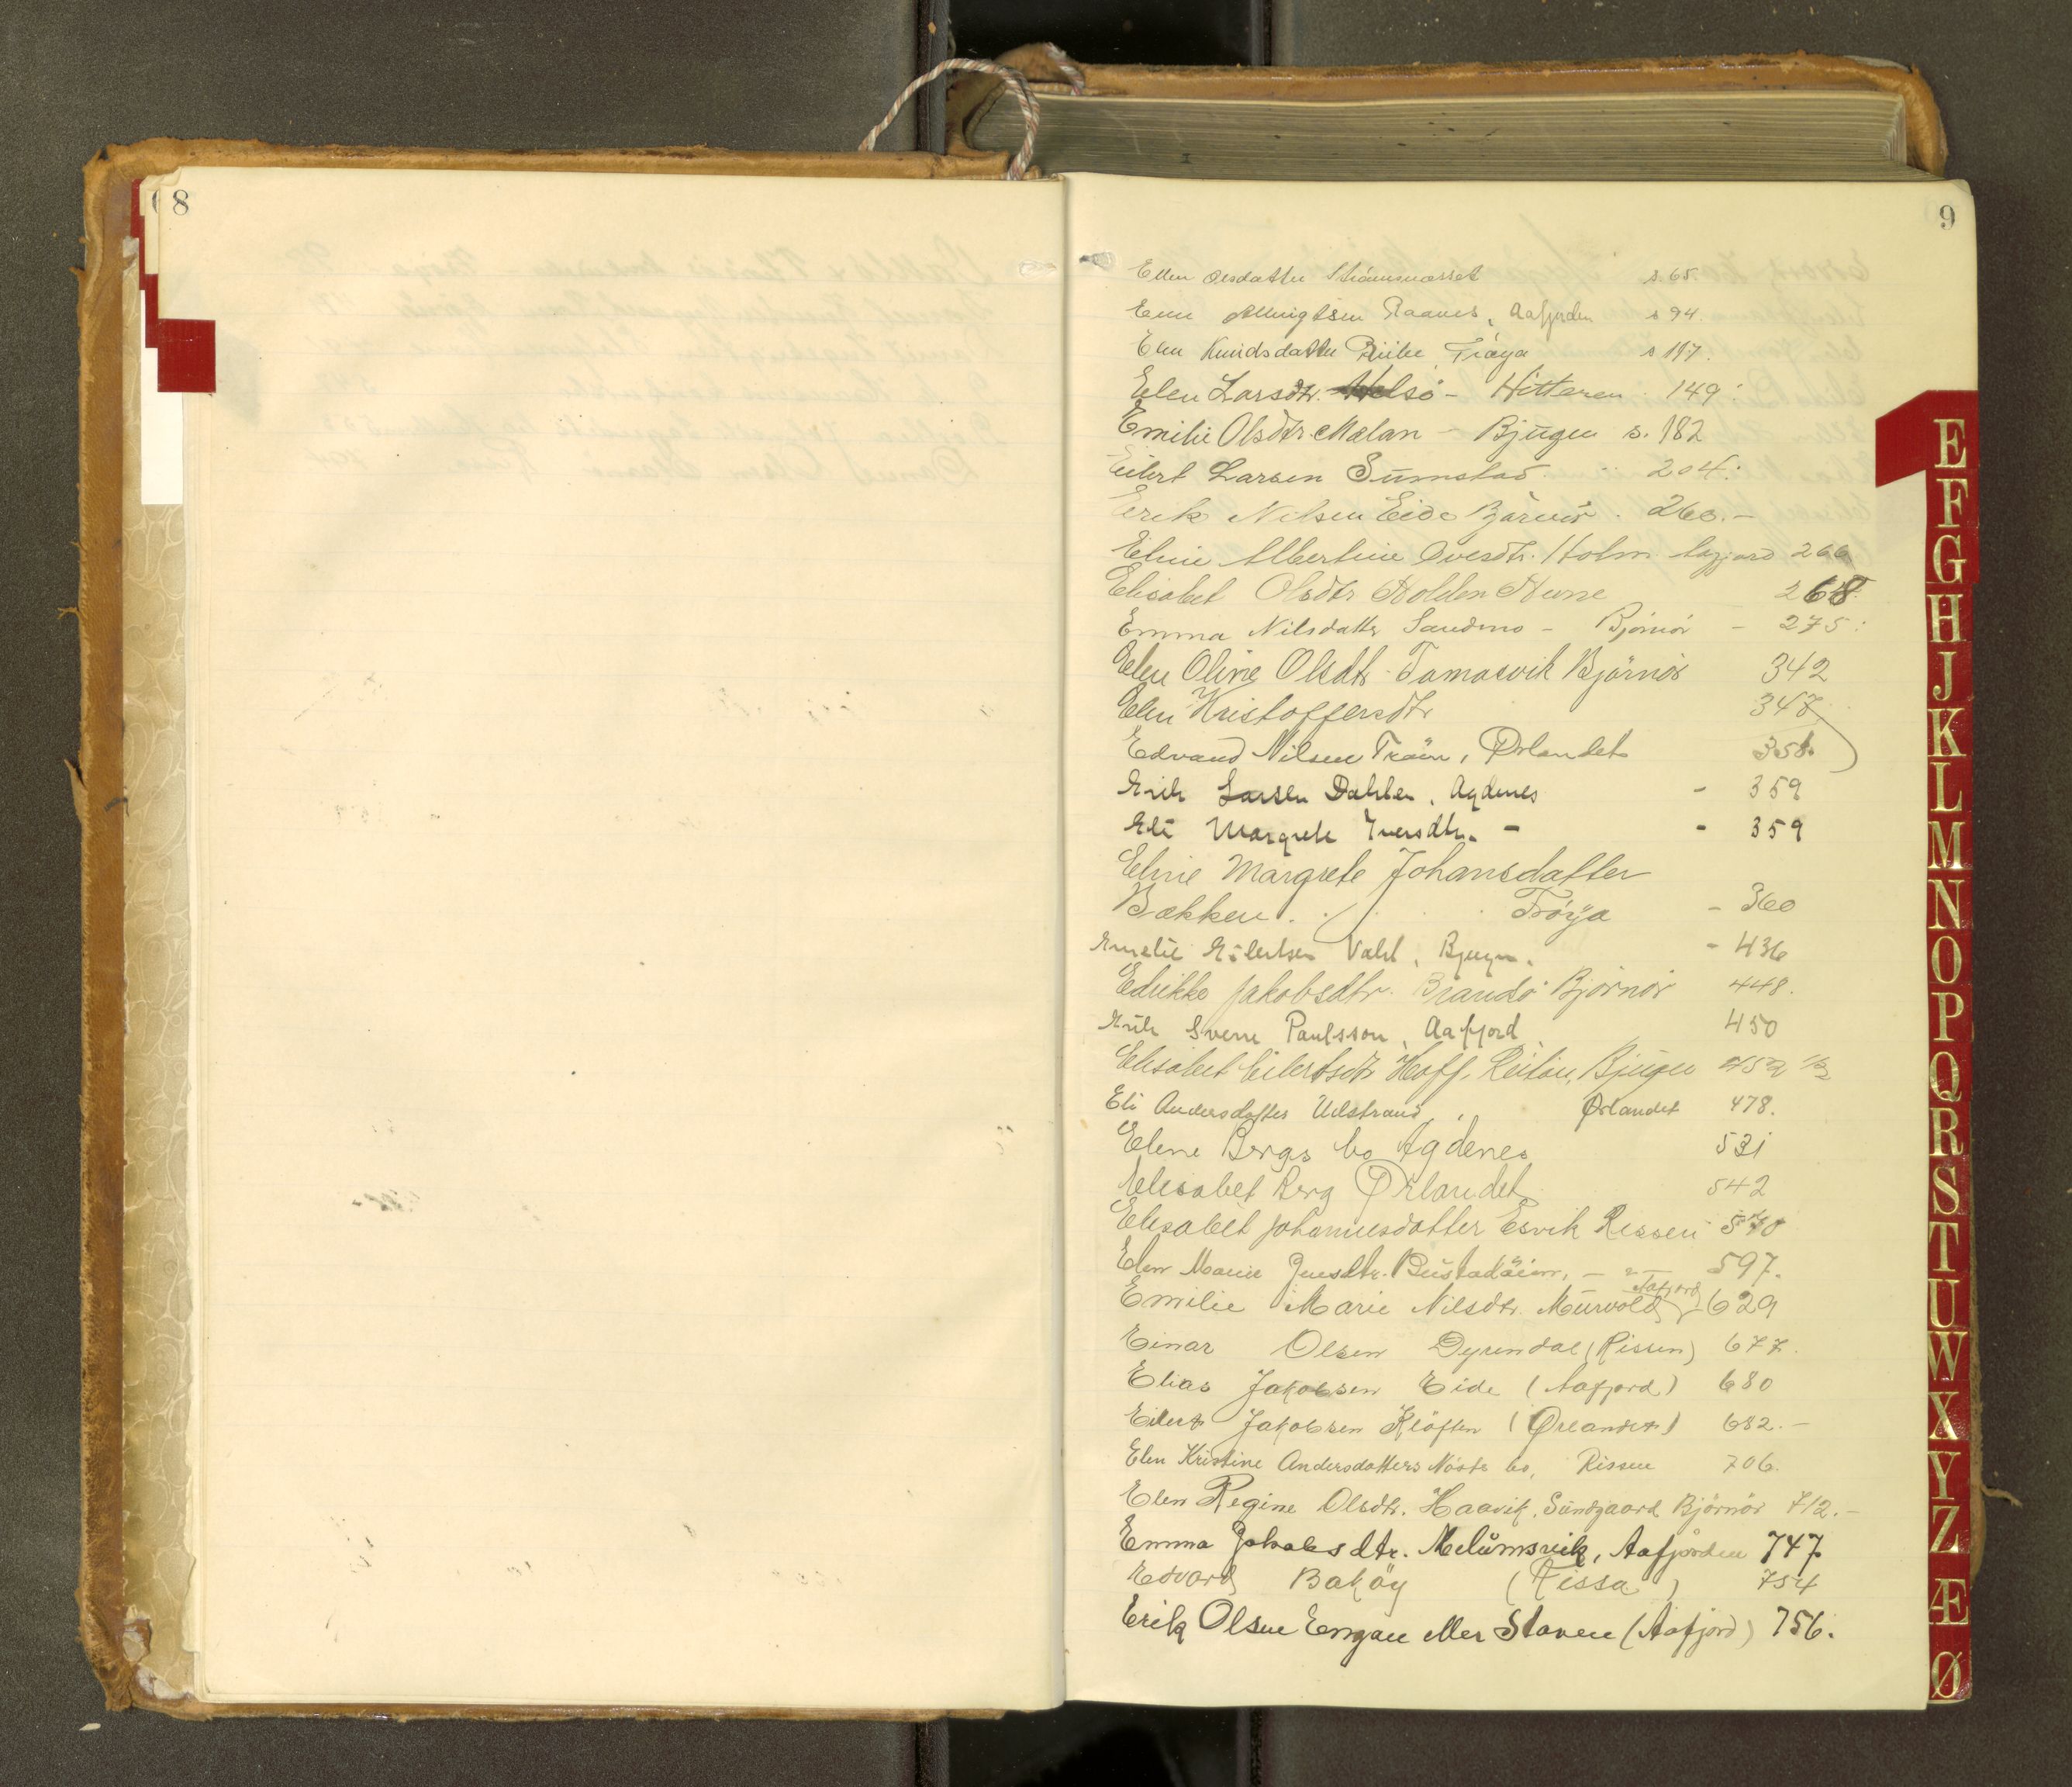 8
9
Ellen Olsdatter Strömsnæsset s. 65.
Raanes, Aafjorden s 94.
Elen Knudsdatter Fröya s 117.
Elen Larsdtr. Hitteren 149:
Emilie Olsdtr. Mælan - Bjugn s. 182
Eilert Larsen Sumstad 204:
Erik Nilsen Eide Björnör. 260.-
Eline Albertine Ovesdtr. Holm Aafjord 266
Elisabet Olsdtr Holden Hevne 268.
Emma Nilsdatter Sandmo - Björnör - 275:
Elen Oline Olsdtr. Tamasvik Björnör 342
Elen Kristoffersdtr 347
Edvard Nilsen Ørlandet 358.
Erik Larsen Dahlen, Agdenes - 359
Eli Margrete Iversdtr. - - 359
Eline Margrete Johansdatter
Bækken. Fröya - 360
Emelie Eilertsen Vald, Bjugn. - 436
Edrikke Jakobsdtr. Brandö Björnör 448.
Erik Sverre Paulsson, Aafjord 450
Elisabet Eilertsdtr Hoff, Bjugn 452 1/2
Eli Andersdatter Udstrand, Ørlandet 478.
Elene Bergs bo Agdenes 531
Elisabet Berg Ørlandet 542
Elisabet Johannesdatter Esvik Rissen
Elen Marie - " - 597.
Aafjord
Emilie Marie Nilsdtr. Murvold 629
Einar Olsen Dyrendal (Rissen) 677.
Elias Jakobsen Eide (Aafjord) 680
Eilert Jakobsen Klöften (Ørlandet) 682.-
Elen Kristine Andersdatters bo, Rissen 706.
Elen Regine Olsdtr. Haavik, Sundgaard Björnör 712.-
Emma Jakobsdtr. Melumsvik, Aafjorden 747
Edvard Baköy (Rissa) 754
Erik Olsen Engan eller Staven (Aafjord) 756.
E
F
G
H
J
K
L
M
N
O
P
Q
R
S
T
U
W
X
Y
Z
Æ
Ø